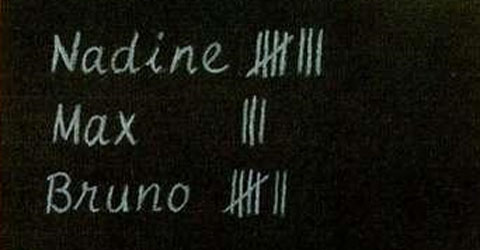 Nadine 卌 |||
Max |||
Bruno 卌 ||